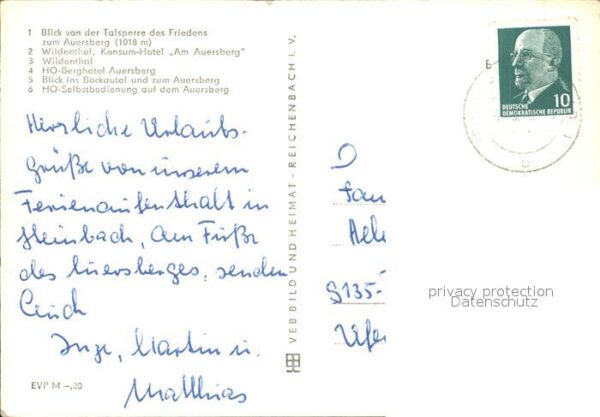 1 Blick von der Talsperre des Friedens
zum Auersberg (1018 m)
2 Wildenthal, Konsum-Hotel „Am Auersberg"
3 Wildenthal
4 HO-Berghotel Auersberg
5 Blick ins Bockautal und zum Auersberg
6 HO-Selbstbedienung auf dem Auersberg
Herzliche Urlaubs-
grüße von unserem
Ferienaufenthalt in
Steinbach, am Fuße
des Auersberges, senden
Euch
Inge, Martin u.
Matthias
EVP M –,20
VEB BILD UND HEIMAT · REICHENBACH I. V.
10
DEUTSCHE
DEMOKRATISCHE REPUBLIK
Fam
privacy protection
Datenschutz